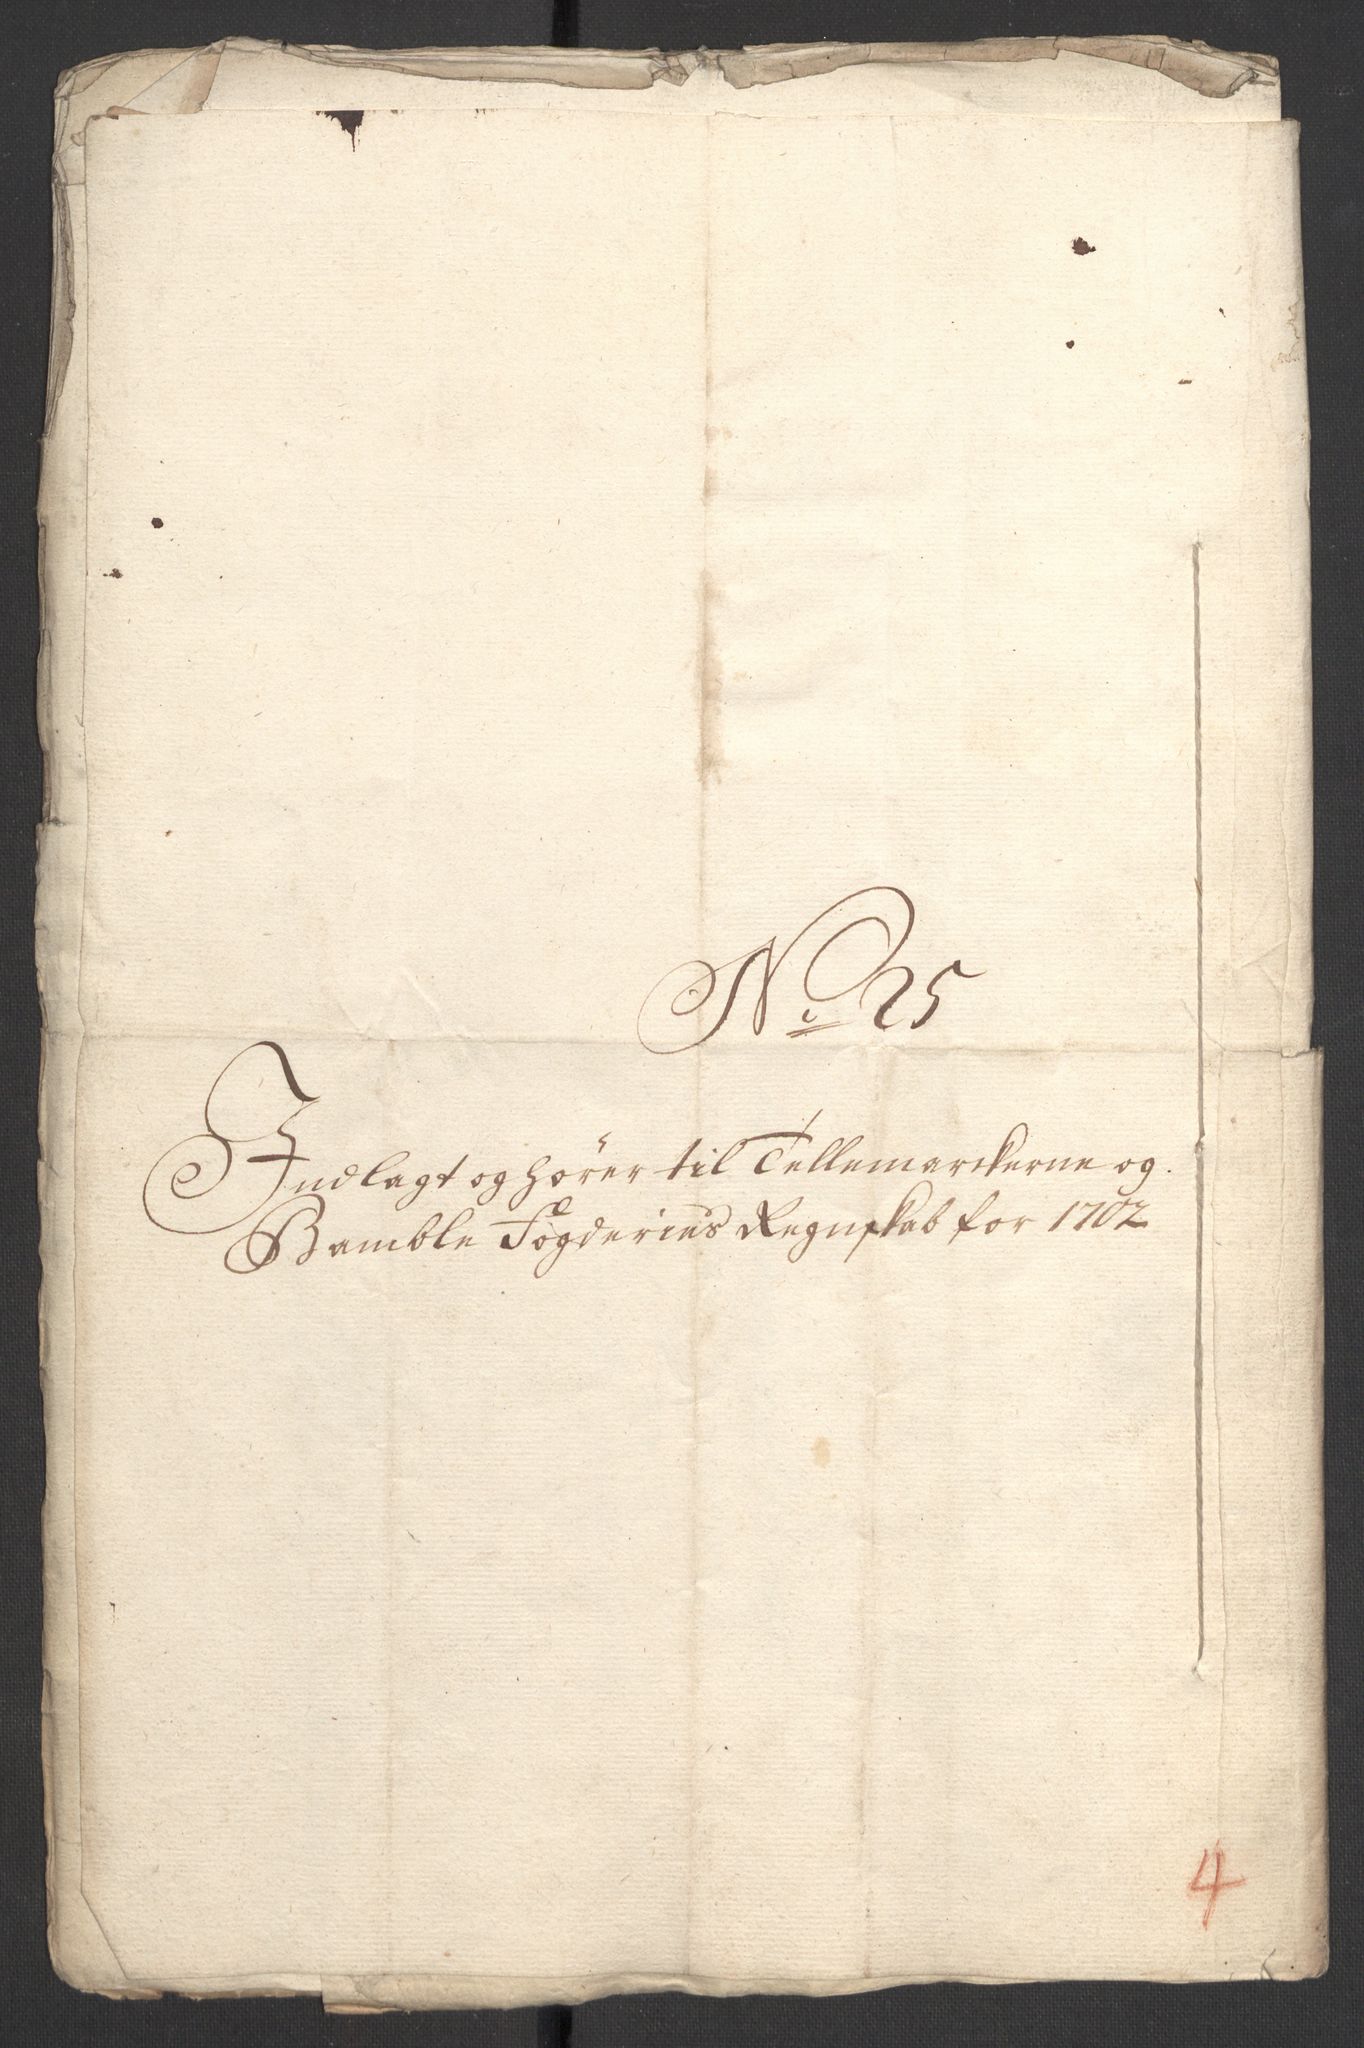 No 25
Indlagt og hører til Tellemarckerne og
Bamble Fogderies Regnskab for 1702
4